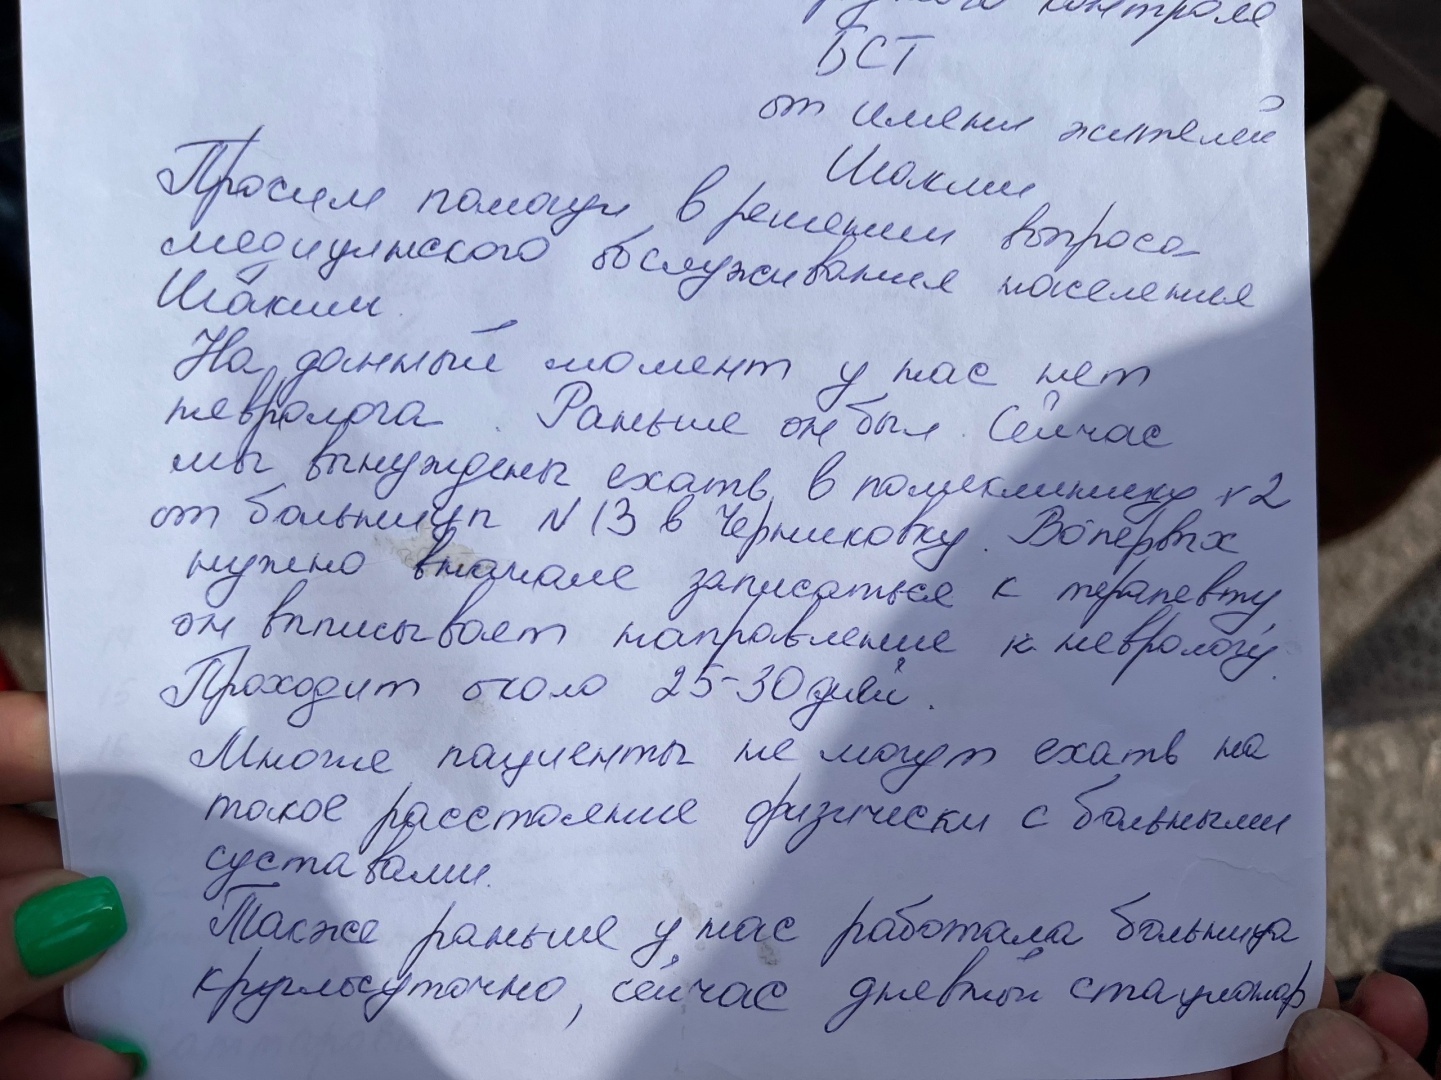 контроля
БСТ
от имени жителей
Шакши
Просим помощи в решении вопроса
медицинского обслуживания населения
Шакши.
На данный момент у нас нет
невролога. Раньше он был. Сейчас
мы вынуждены ехать в поликлинику №2
от больницы №13 в Черниковку. Вопервых
нужно вначале записаться к терапевту,
он выписывает направление к неврологу.
Проходит около 25-30 дней.
Многие пациенты не могут ехать на
такое расстояние физически с больными
суставами.
Также раньше у нас работала больница
круглосуточно, сейчас дневной стационар